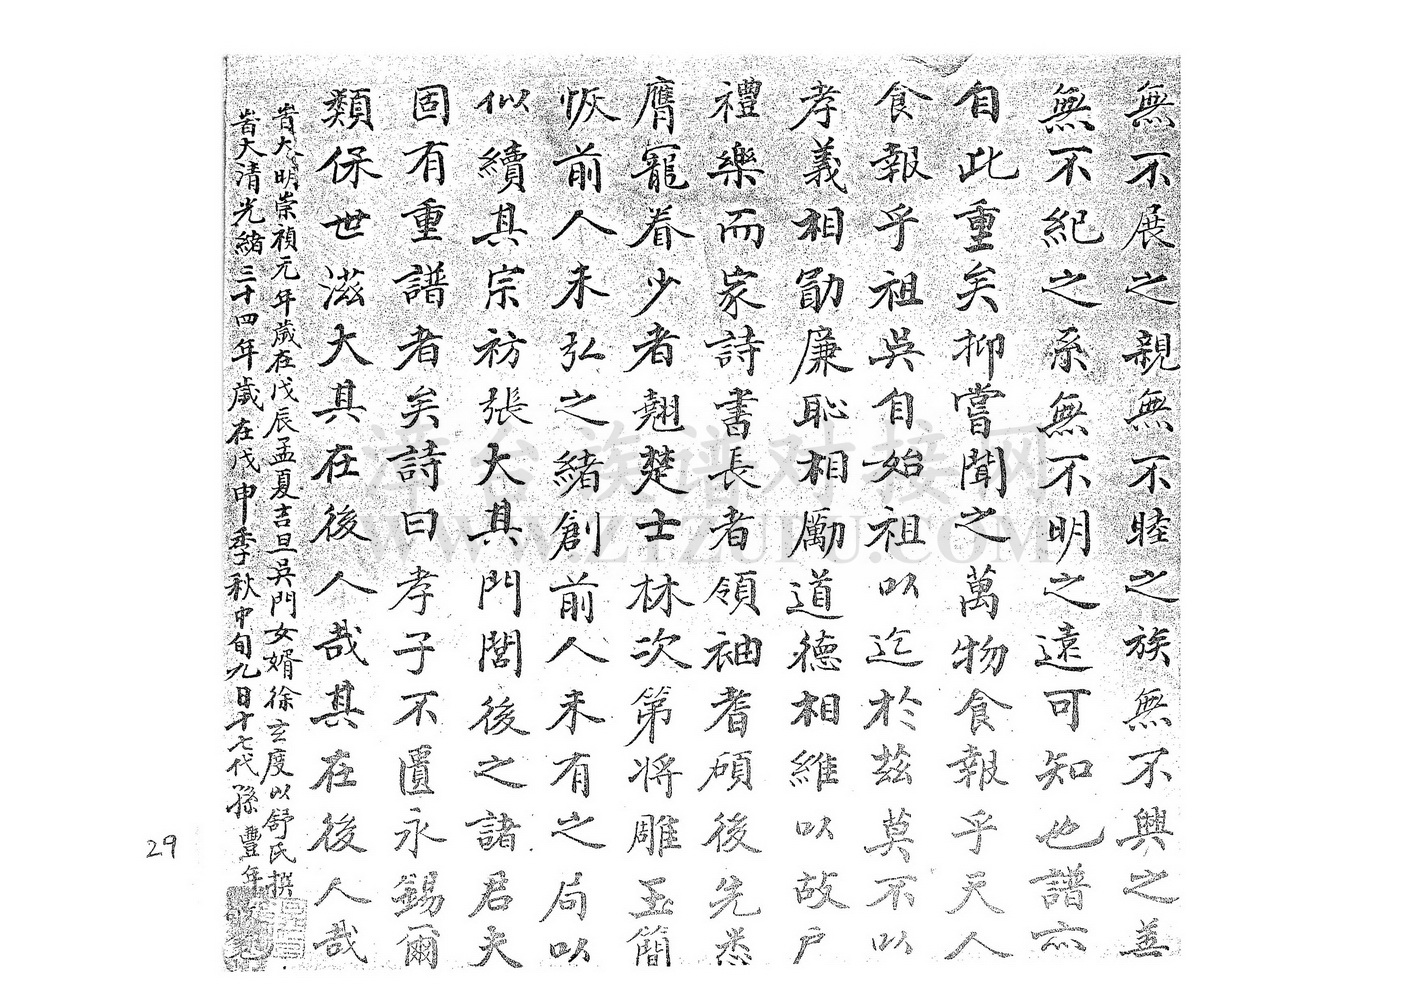 無不展之親無不睦之族無不興之善
無不紀之系無不明之遠可知也譜亦
自此重矣抑嘗聞之萬物食報乎天人
食報乎祖吳自始祖以迄於茲莫不以
孝義相勖廉恥相勵道德相維以故戶
禮樂而家詩書長者領袖耆碩後先悉
膺寵眷少者翹楚士林次第將雕玉簡
恢前人未弘之緒創前人未有之局以
似續其宗祊張大其門閭後之諸君夫
固有重譜者矣詩曰孝子不匱永錫爾
類保世滋大其在後人哉其在後人哉
旹大明崇禎元年歲在戊辰孟夏吉旦吳門女婿徐玄度以舒氏撰
旹大清光緒三十四年歲在戊申季秋中旬九日十七代孫豐年
29
泽台族谱对接网
WWW.ZTZUPU.COM